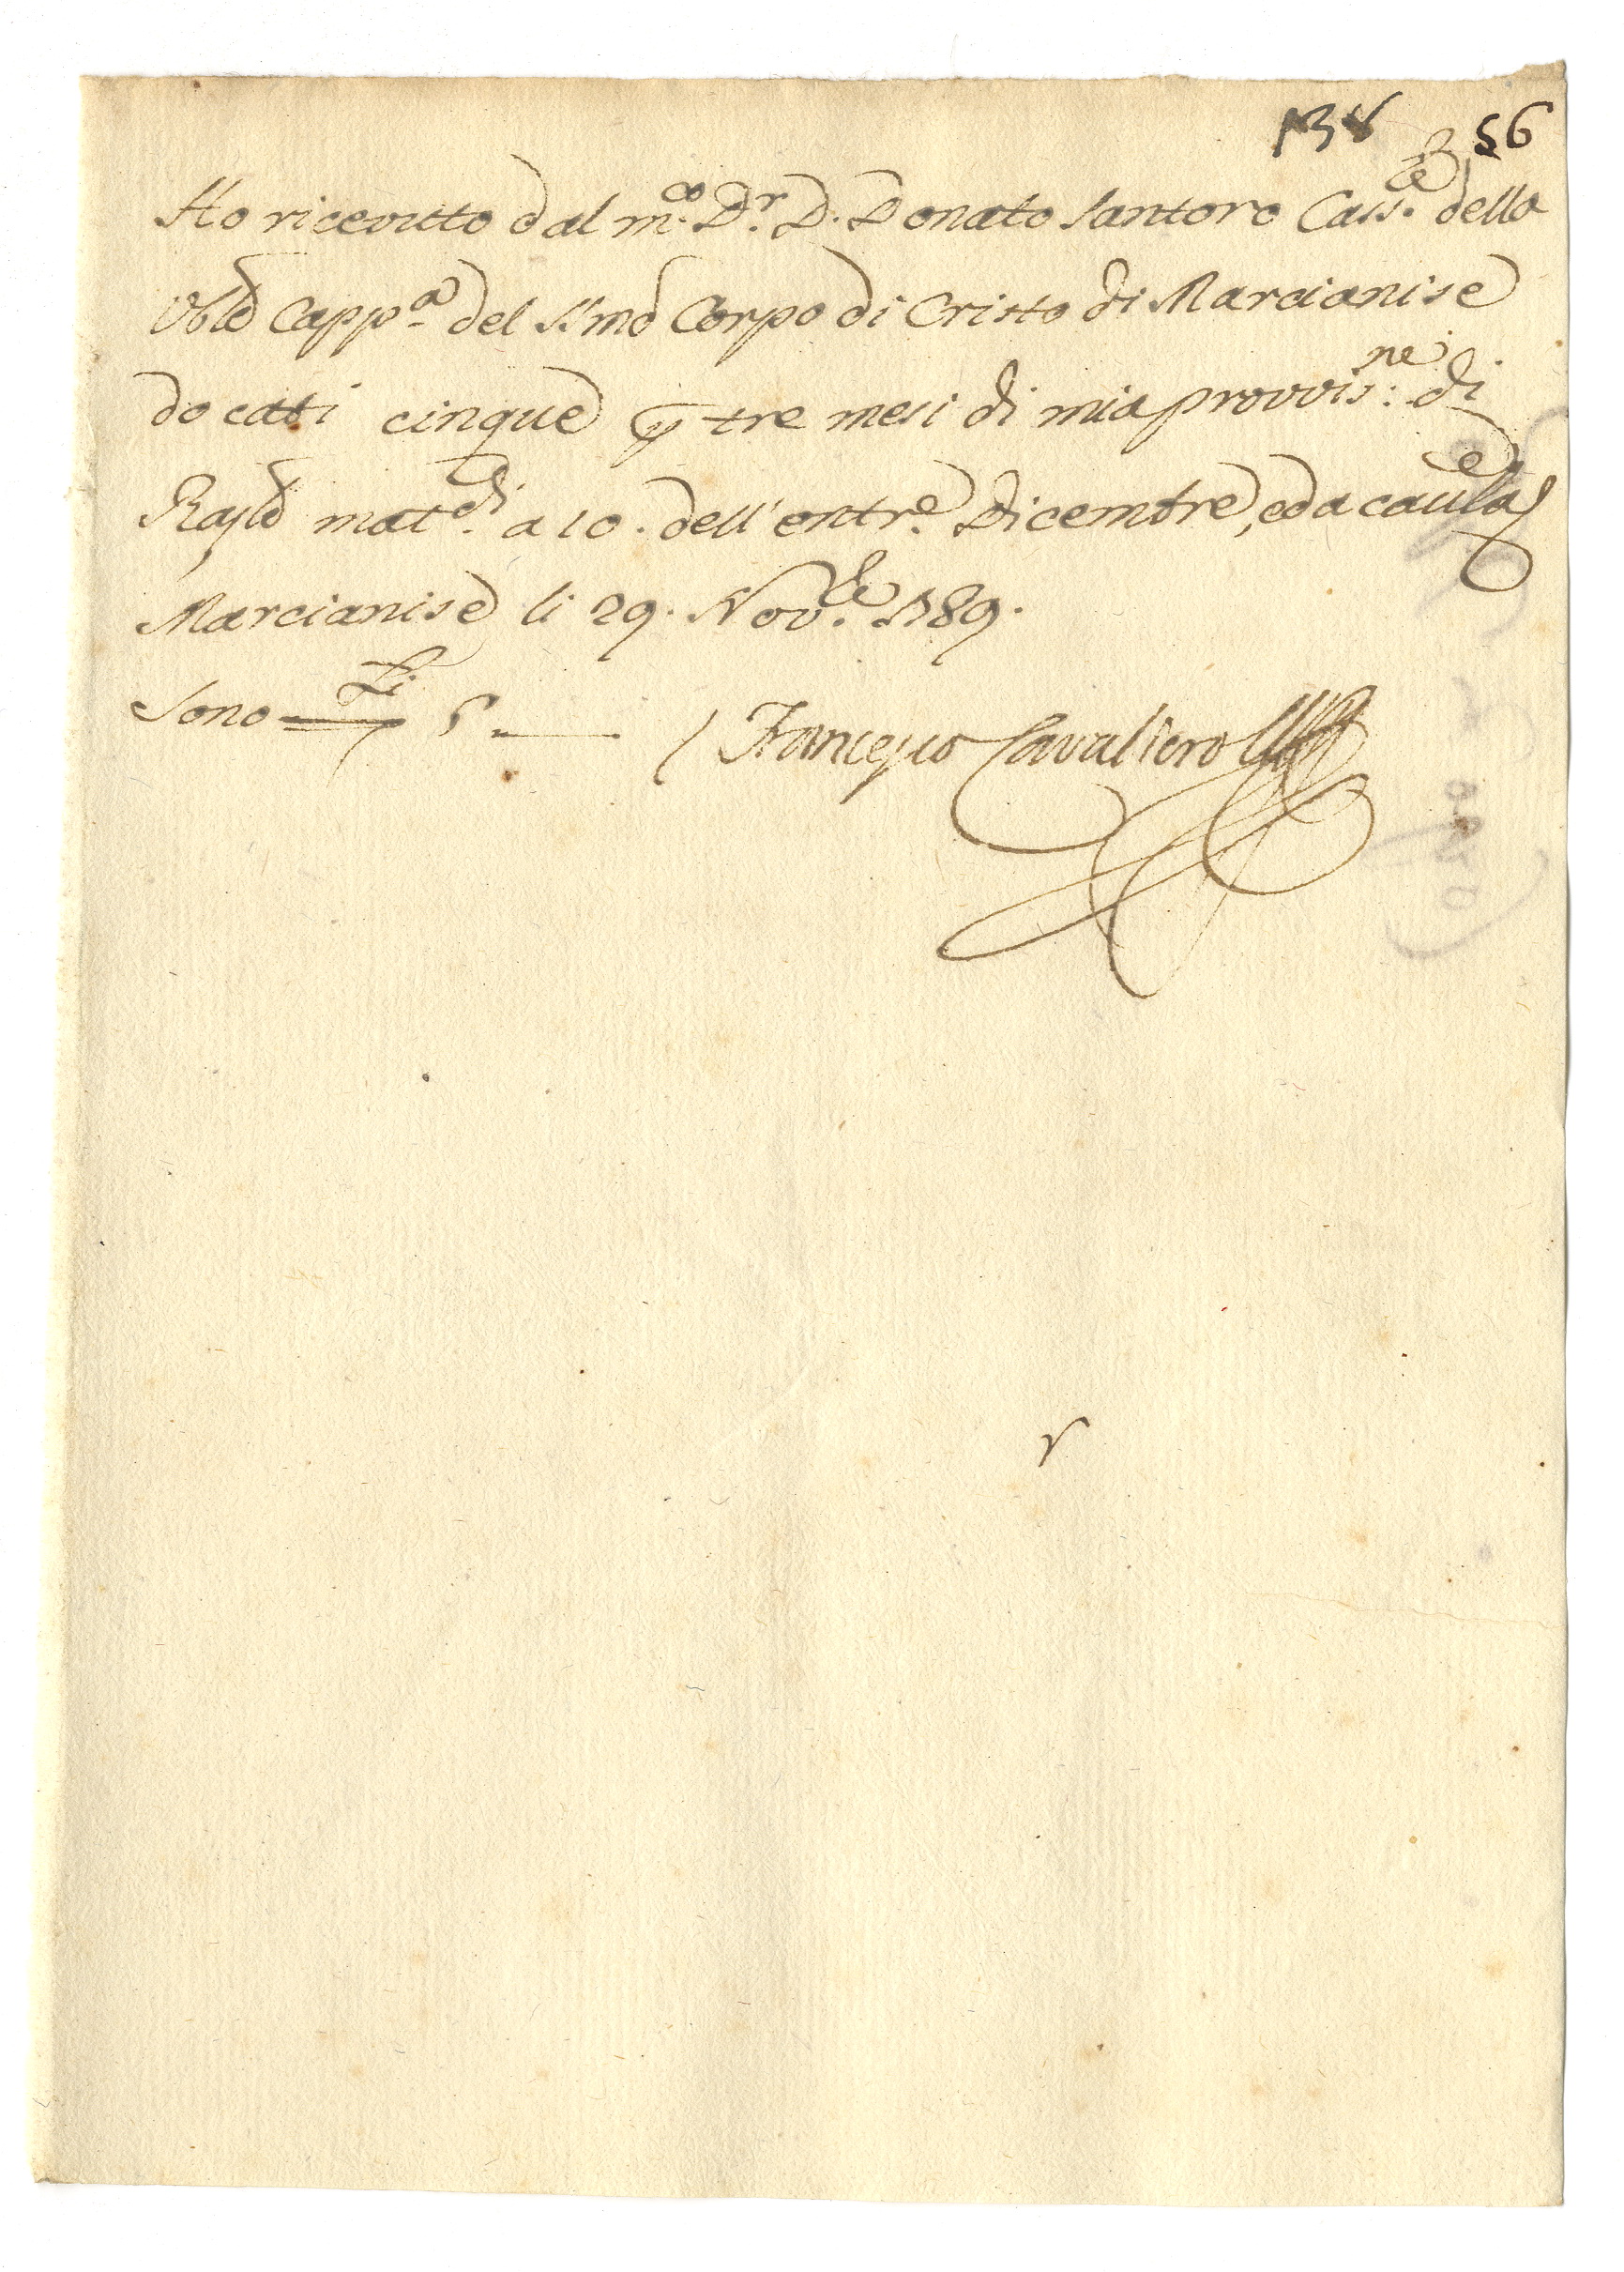 138 56
Ho ricevuto dal m.co D.r D. Donato Santoro Cass.re della
Vble Capp.a del SSmo Corpo di Cristo di Marcianise
docati cinque p tre mesi di mia provvis:ne di
mat.di a 10. dell'entr.e Dicembre, ed a caut.la
Marcianise li 29. Nov.e 1789.
Sono 5
Francesco Cavaliero